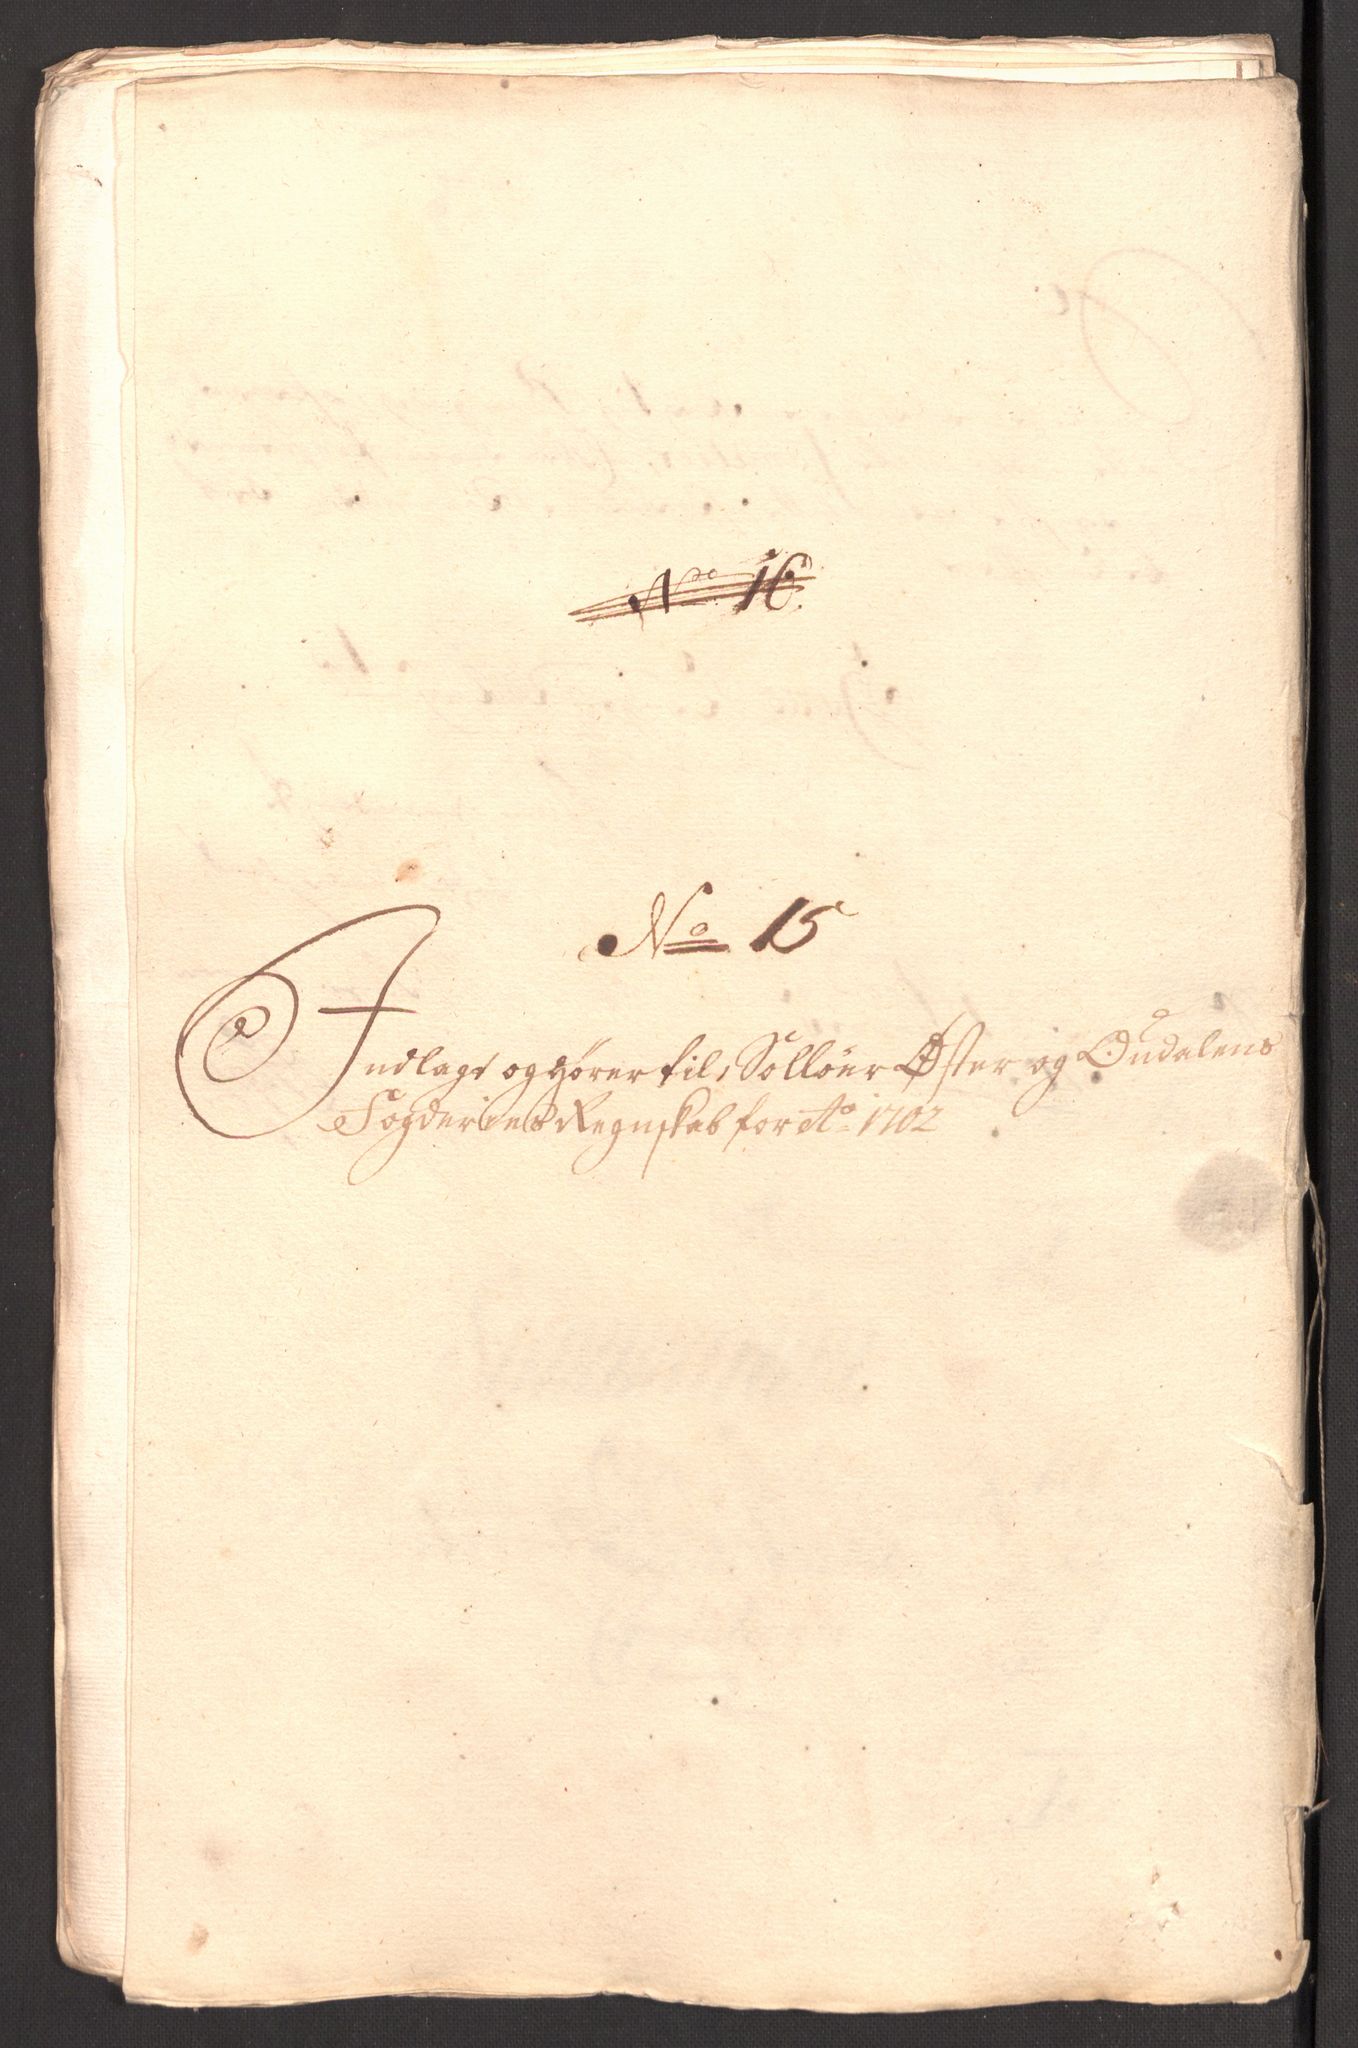 No 16
No 15
Indlagt og hører til, Solløer Øster og Oudalens
Fogderies Regnskab for Ao 1702